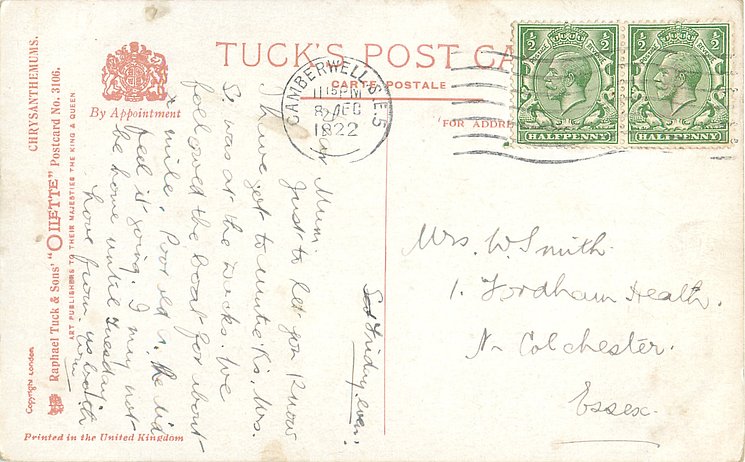 TUCK'S POST CA
CARTE POSTALE
By Appointment
"FOR ADDRE
CHRYSANTHEMUMS.
Raphael Tuck & Sons' "OILETTE" Postcard No. 3106.
ART PUBLISHERS TO THEIR MAJESTIES THE KING & QUEEN
Copyright London
Printed in the United Kingdom
CAMBERWELL S.E.5
11 15 PM
8 DEC
1922
1/2 1/2
HALFPENNY
1/2 1/2
HALFPENNY
Friday even:
Mum
Just to let you know
I have got to Auntie K's. Mrs.
S. was at the Docks. We
followed the boat for about
a mile. Poor old he did
feel it going. I may not
be home until Tuesday
Love from us both
Mrs. W. Smith.
1. Fordham Heath.
Nr Colchester.
Essex.